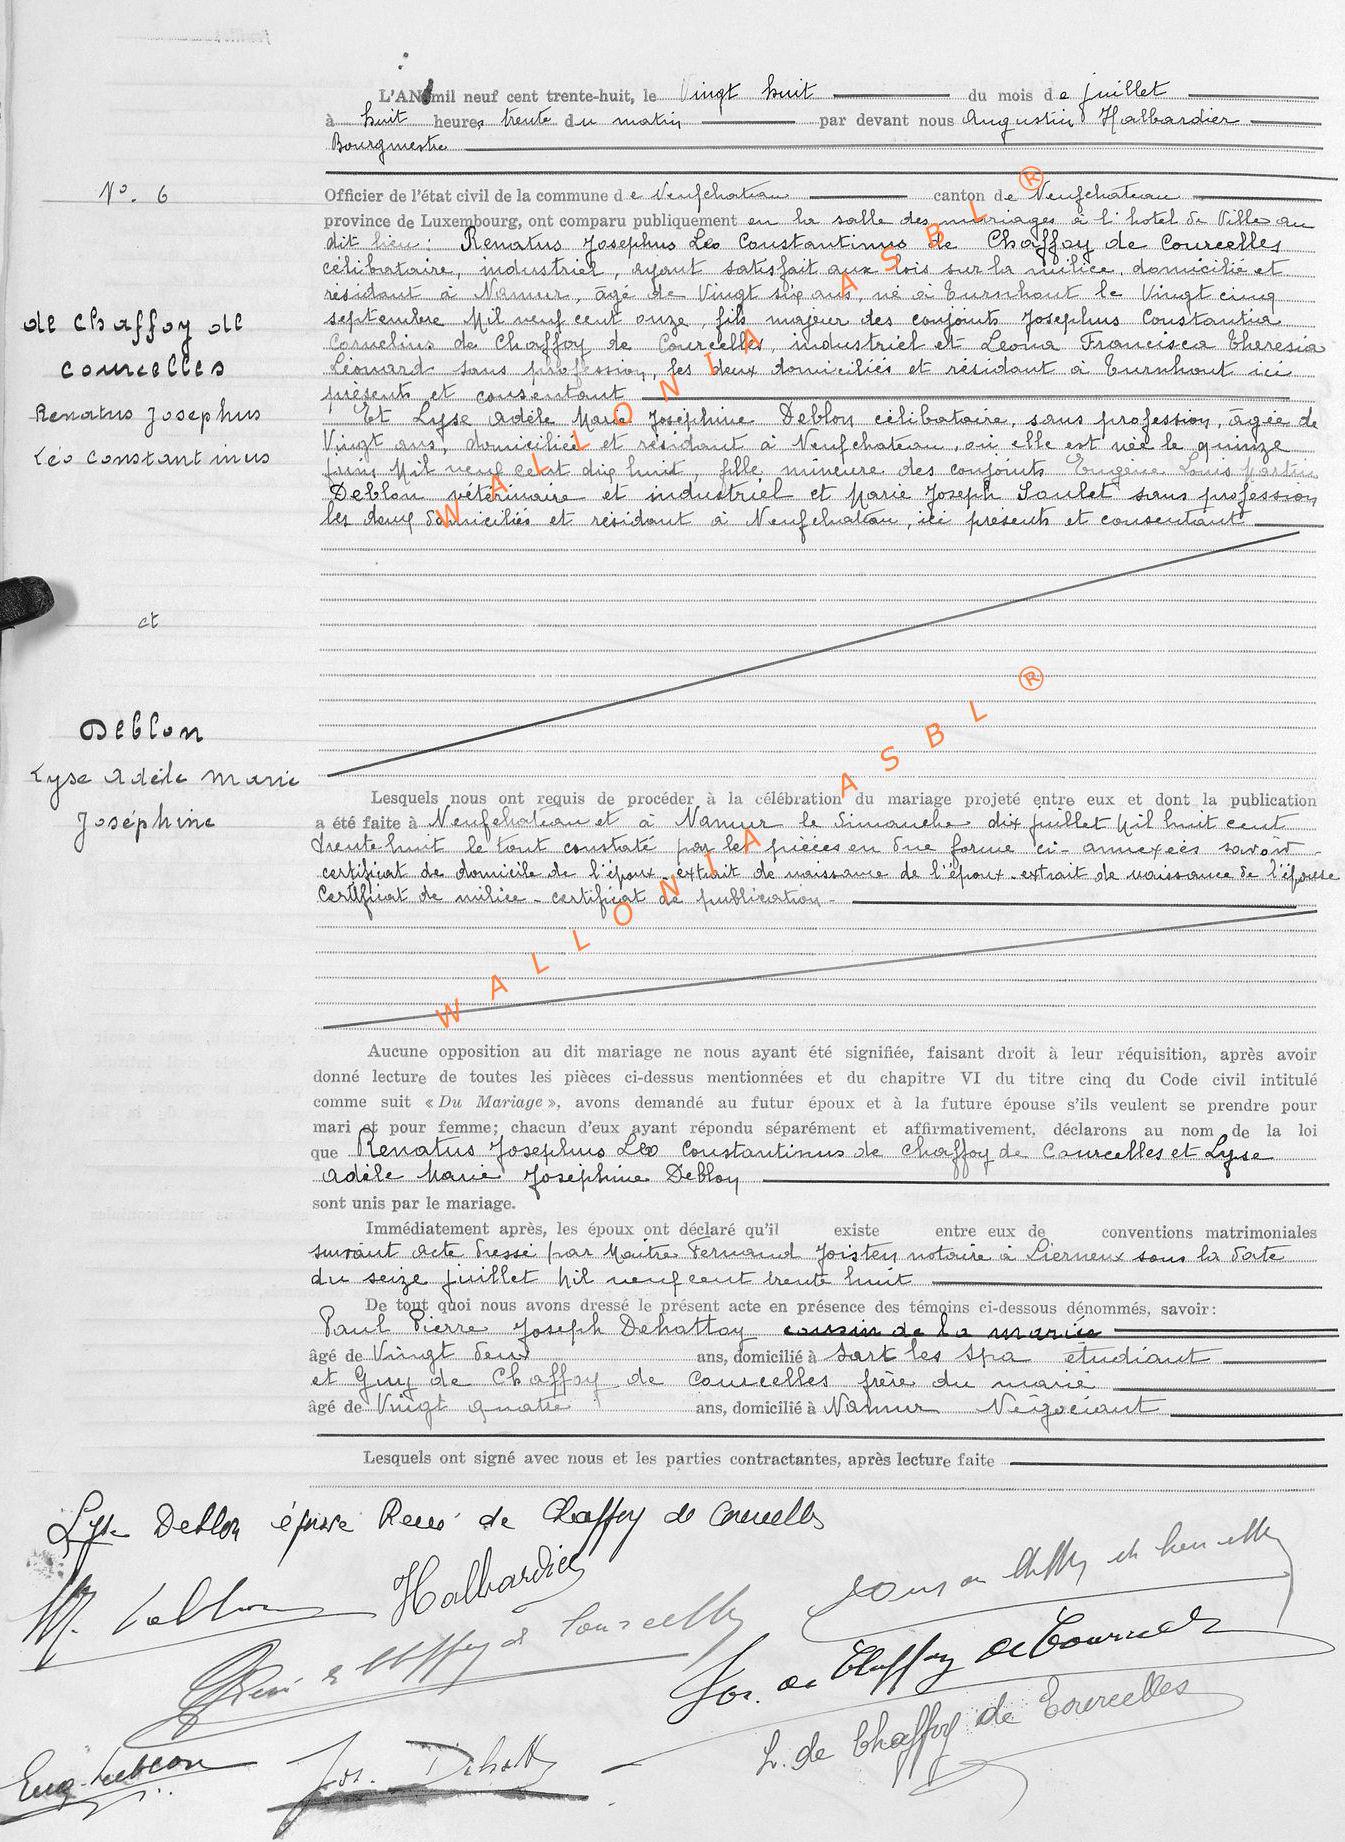 L'AN mil neuf cent trente-huit, le Vingt huit du mois de juillet
à huit heures trente du matin par devant nous Augustin Halbardier
Bourgmestre
Nº. 6
Officier de l'état civil de la commune de Neufchateau canton de Neufchateau
province de Luxembourg, ont comparu publiquement en la salle des mariages à l'hotel de Ville au
dit lieu : Renatus Josephus Leo Constantinus de Chaffoy de Courcelles
célibataire, industriel, ayant satisfait aux lois sur la milice, domicilié et
résidant à Namur, âgé de Vingt six ans, né à Turnhout le Vingt cinq
septembre Mil neuf cent onze, fils majeur des conjoints Josephus Constantin
Cornelius de Chaffoy de Courcelles, industriel et Leona Francisca Theresia
Léonard sans profession, les deux domiciliés et résidant à Turnhout ici
présents et consentant
de Chaffoy de
Courcelles
Renatus Josephus
Léo Constantinus
Et Lyse Adèle Marie Joséphine Deblon célibataire, sans profession, âgée de
Vingt ans, domiciliée et résidant à Neufchateau, où elle est née le quinze
juin Mil neuf cent dix huit, fille mineure des conjoints Eugène Louis Martin
Deblon vétérinaire et industriel et Marie Joseph Soulet sans profession
les deux domiciliés et résidant à Neufchateau, ici présents et consentant
et
Deblon
Lyse Adèle Marie
Joséphine
WALLONIA ASBL ®
Lesquels nous ont requis de procéder à la célébration du mariage projeté entre eux et dont la publication
a été faite à Neufchateau et à Namur le dimanche dix juillet Mil huit cent
trente huit le tout constaté par les pièces en due forme ci-annexées savoir
certificat de domicile de l'époux - extrait de naissance de l'époux - extrait de naissance de l'épouse
Certificat de milice - certificat de publication -
WALLONIA ASBL ®
Aucune opposition au dit mariage ne nous ayant été signifiée, faisant droit à leur réquisition, après avoir
donné lecture de toutes les pièces ci-dessus mentionnées et du chapitre VI du titre cinq du Code civil intitulé
comme suit « Du Mariage », avons demandé au futur époux et à la future épouse s'ils veulent se prendre pour
mari et pour femme; chacun d'eux ayant répondu séparément et affirmativement, déclarons au nom de la loi
que Renatus Josephus Léo Constantinus de Chaffoy de Courcelles et Lyse
Adèle Marie Joséphine Deblon
sont unis par le mariage.
Immédiatement après, les époux ont déclaré qu'il existe entre eux de conventions matrimoniales
suivant acte dressé par Maître Fernand Joisten notaire à Lierneux sous la date
du seize juillet Mil neuf cent trente huit
De tout quoi nous avons dressé le présent acte en présence des témoins ci-dessous dénommés, savoir :
Paul Pierre Joseph Dehottay cousin de la mariée
âgé de Vingt deux ans, domicilié à Sart les Spa étudiant
et Guy de Chaffoy de Courcelles frère du marié
âgé de Vingt quatre ans, domicilié à Namur Négociant
Lesquels ont signé avec nous et les parties contractantes, après lecture faite
Lyse Deblon épouse René de Chaffoy de Courcelles
M. Deblon Halbardier
René de Chaffoy de Courcelles
Jos. de Chaffoy de Courcelles
L. de Chaffoy de Courcelles
Eug. Deblon